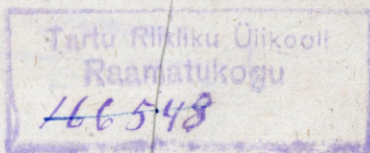 Tartu Riikliku Ülikooli
Raamatukogu
166548